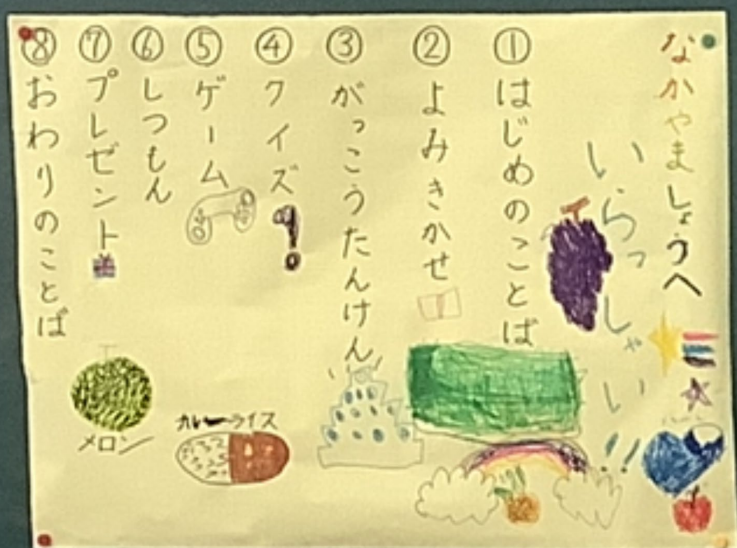 なかやましょうへ
いらっしゃい!!
①はじめのことば
②よみきかせ
③がっこうたんけん
④クイズ
⑤ゲーム
⑥しつもん
⑦プレゼント
⑧おわりのことば
カレーライス
メロン